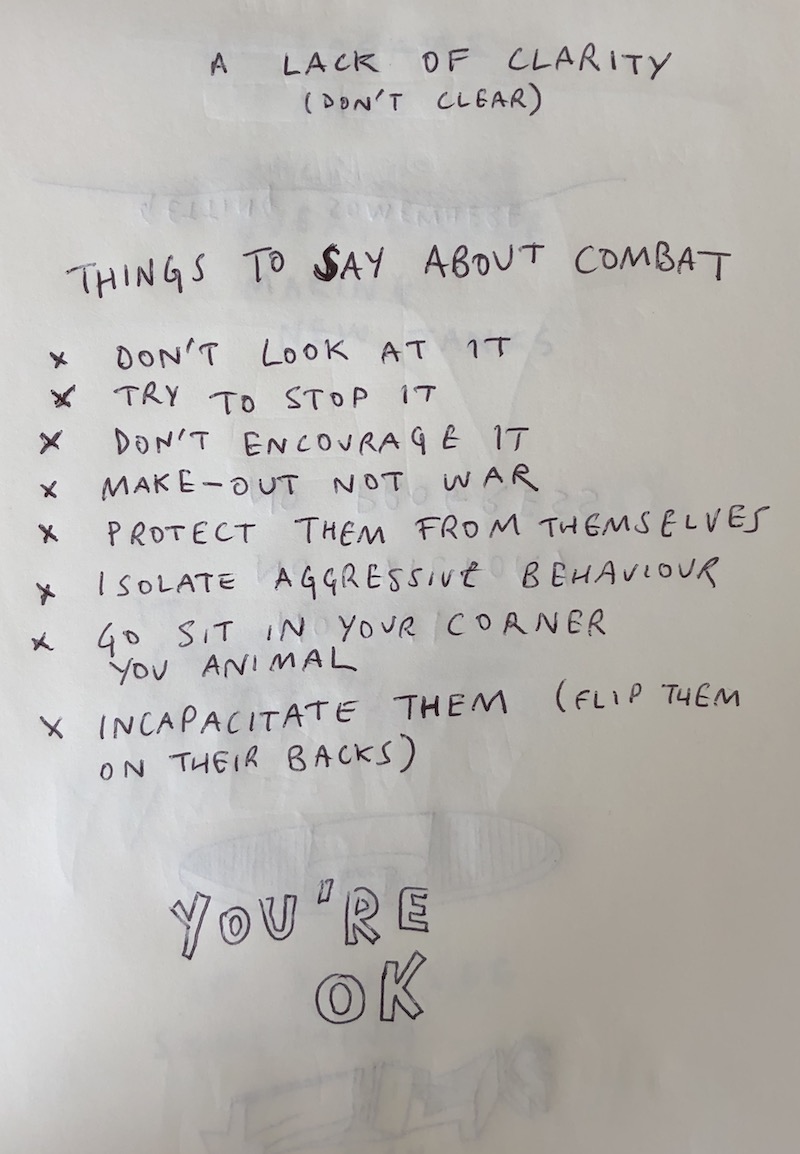 A LACK OF CLARITY
(DON'T CLEAR)
THINGS TO SAY ABOUT COMBAT
x DON'T LOOK AT IT
x TRY TO STOP IT
x DON'T ENCOURAGE IT
x MAKE-OUT NOT WAR
x PROTECT THEM FROM THEMSELVES
x ISOLATE AGGRESSIVE BEHAVIOUR
x GO SIT IN YOUR CORNER
YOU ANIMAL
x INCAPACITATE THEM (FLIP THEM
ON THEIR BACKS)
YOU'RE
OK